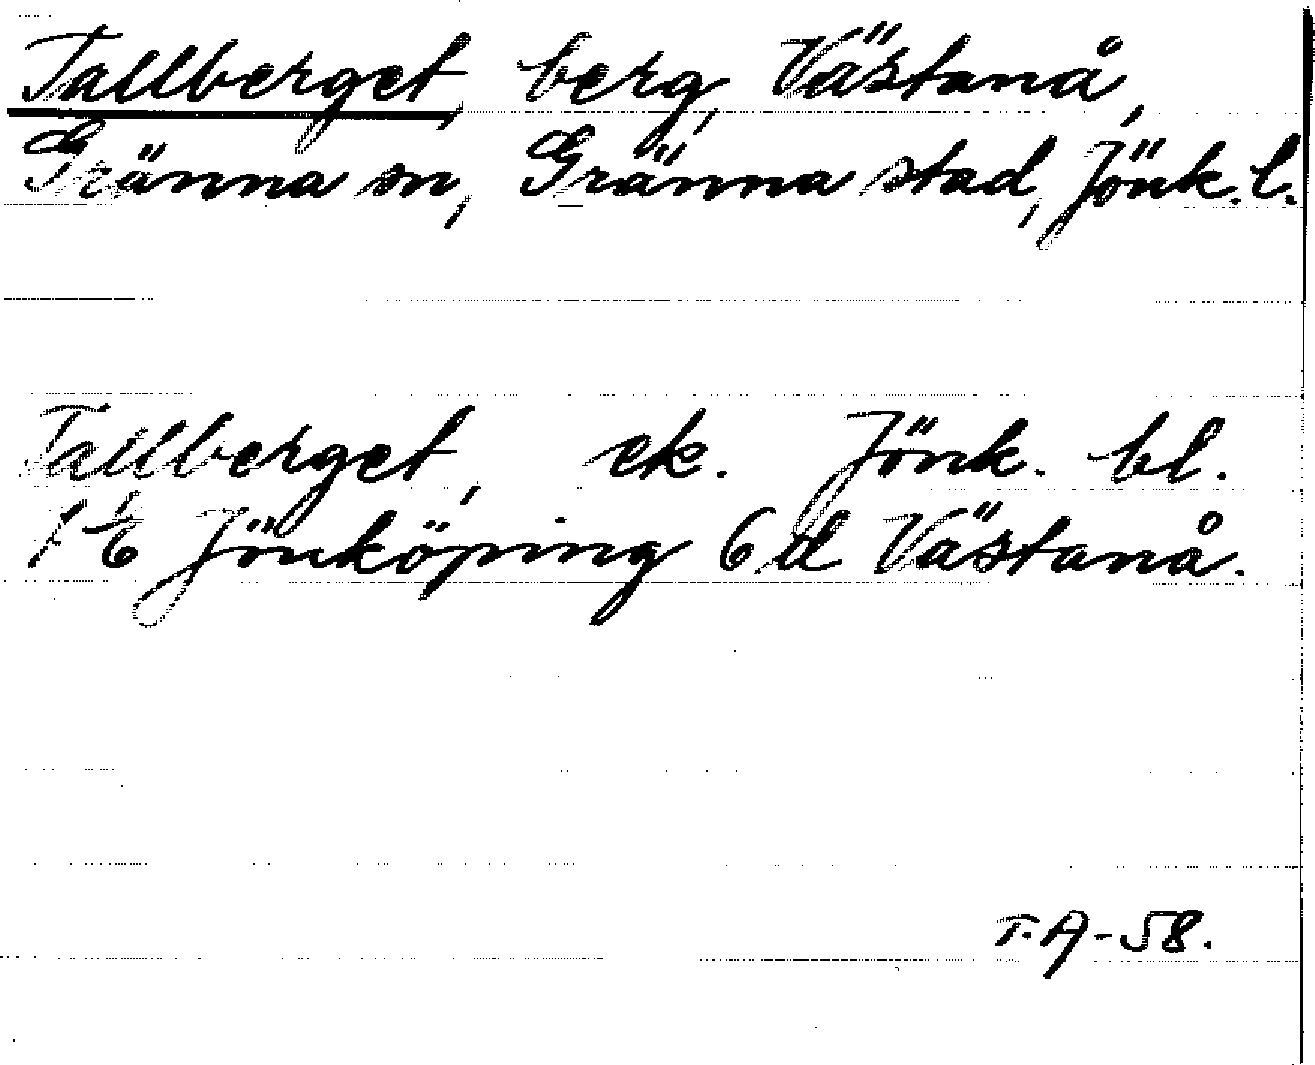 Tallberget, berg, Västanå,
Gränna sn, Gränna stad, Jönk. l.
Tallberget, ek. Jönk. bl.
Jönköping 6 d Västanå.
T.A-58.